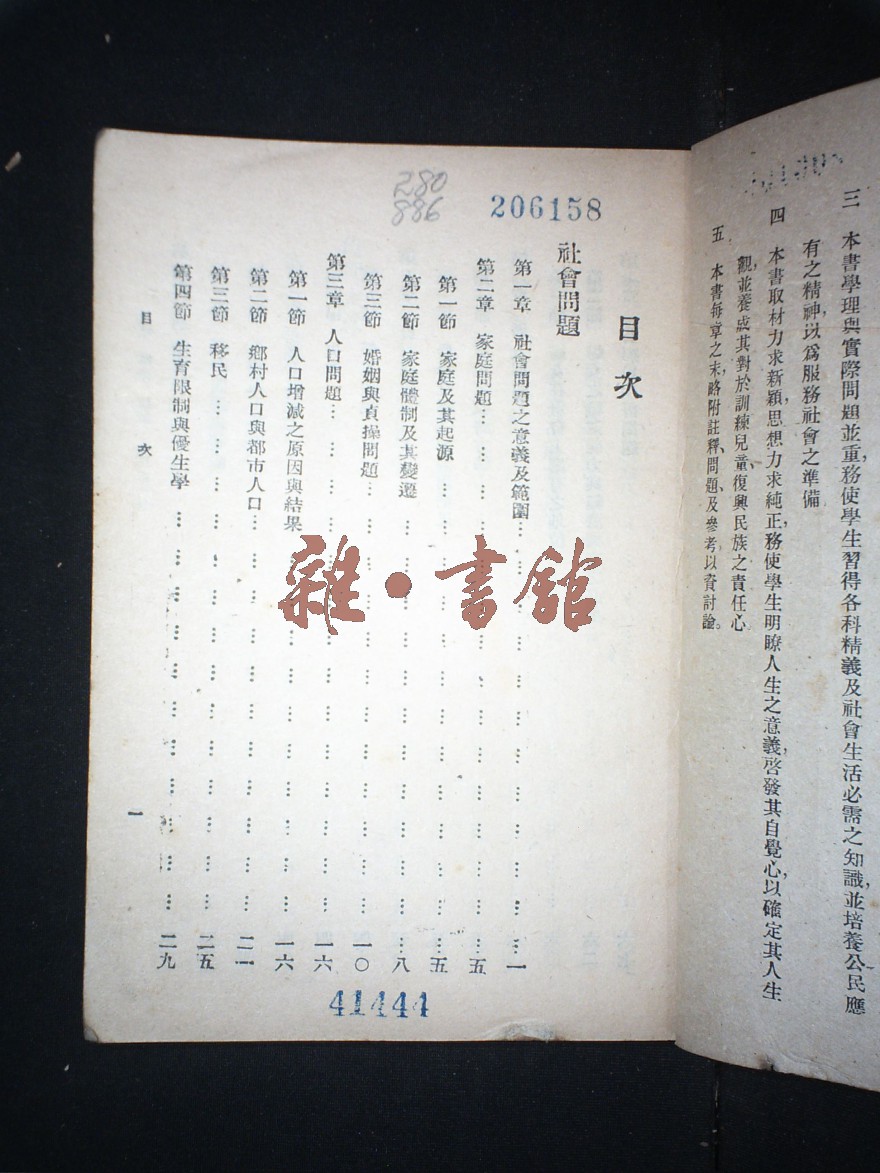 三　本書學理與實際問題並重，務使學生習得各科精義及社會生活必需之知識，並培養公民應
有之精神，以爲服務社會之準備
四　本書取材力求新穎，思想力求純正，務使學生明瞭人生之意義，啓發其自覺心，以確定其人生
觀，並養成其對於訓練兒童，復興民族之責任心
五　本書每章之末，略附註釋、問題、及參考，以資討論。
280
886
206158
目次
社會問題
第一章　社會問題之意義及範圍…………一
第二章　家庭問題…………五
第一節　家庭及其起源…………五
第二節　家庭體制及其變遷…………八
第三節　婚姻與貞操問題…………一〇
第三章　人口問題…………一六
第一節　人口增減之原因與結果…………一六
第二節　鄉村人口與都市人口…………二一
第三節　移民…………二五
第四節　生育限制與優生學…………二九
目　次
一
41444
雜·書館